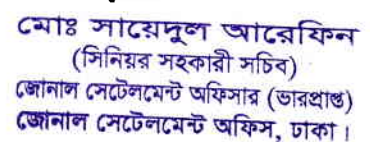 মোঃ সায়েদুল আরেফিন
(সিনিয়র সহকারী সচিব)
জোনাল সেটেলমেন্ট অফিসার (ভারপ্রাপ্ত)
জোনাল সেটেলমেন্ট অফিস, ঢাকা।